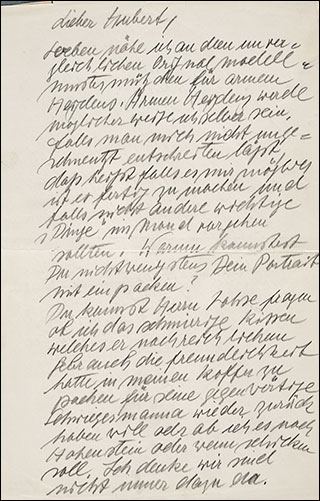 Lieber Hubert,
soeben nähe ich an dem unver-
gleichlichen
für armen
Heydens. Armen Heydens werde
möglicher weise ich selber sein.
falls man mich nicht unge-
entschreiten läßt,
das heißt falls es mir möglich
ist er fertig zu machen und
falls nicht andere wichtige
"Dinge" im Mond vorgehen
sollten. Warum kannst
Du nicht wenigstens Dein Portrait
mit ein packen?
Du kannst Herrn fragen
ob ich das schmutzige Kissen
welches er nach reichlichem
auch die freundlichkeit
hatte in meinen Koffer zu
packen für seine gegenwärtige
Schwiegermama wieder zurück
haben will oder ob ich es nach
Hohenstein oder wem schicken
soll. Ich denke wir sind
nicht immer dazu da.